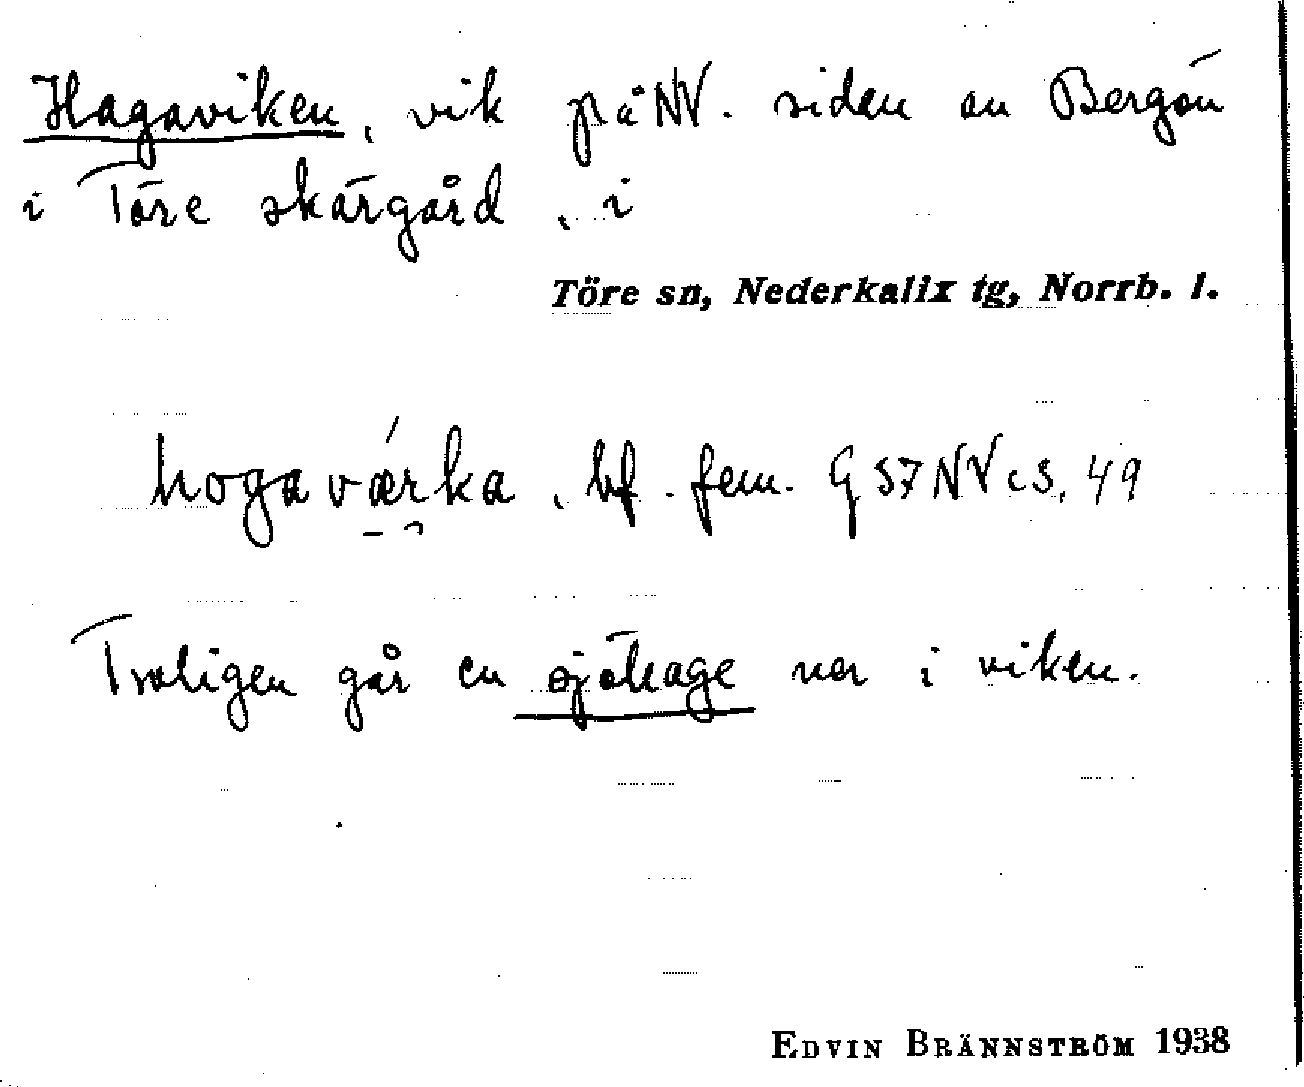 Hagaviken, vik på NV. sidan av Bergön
i Töre skärgård, i
Töre sn, Nederkalix tg, Norrb. l.
hogavæ̠ŕka, bf. fem. G 57 NV c S, 49
Troligen går en sjöhage ner i viken.
EDVIN BRÄNNSTRÖM 1938